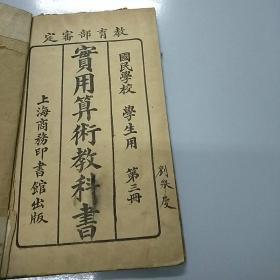 教育部審定
國民學校
學生用
第三冊
實用算術教科書
上海商務印書館出版